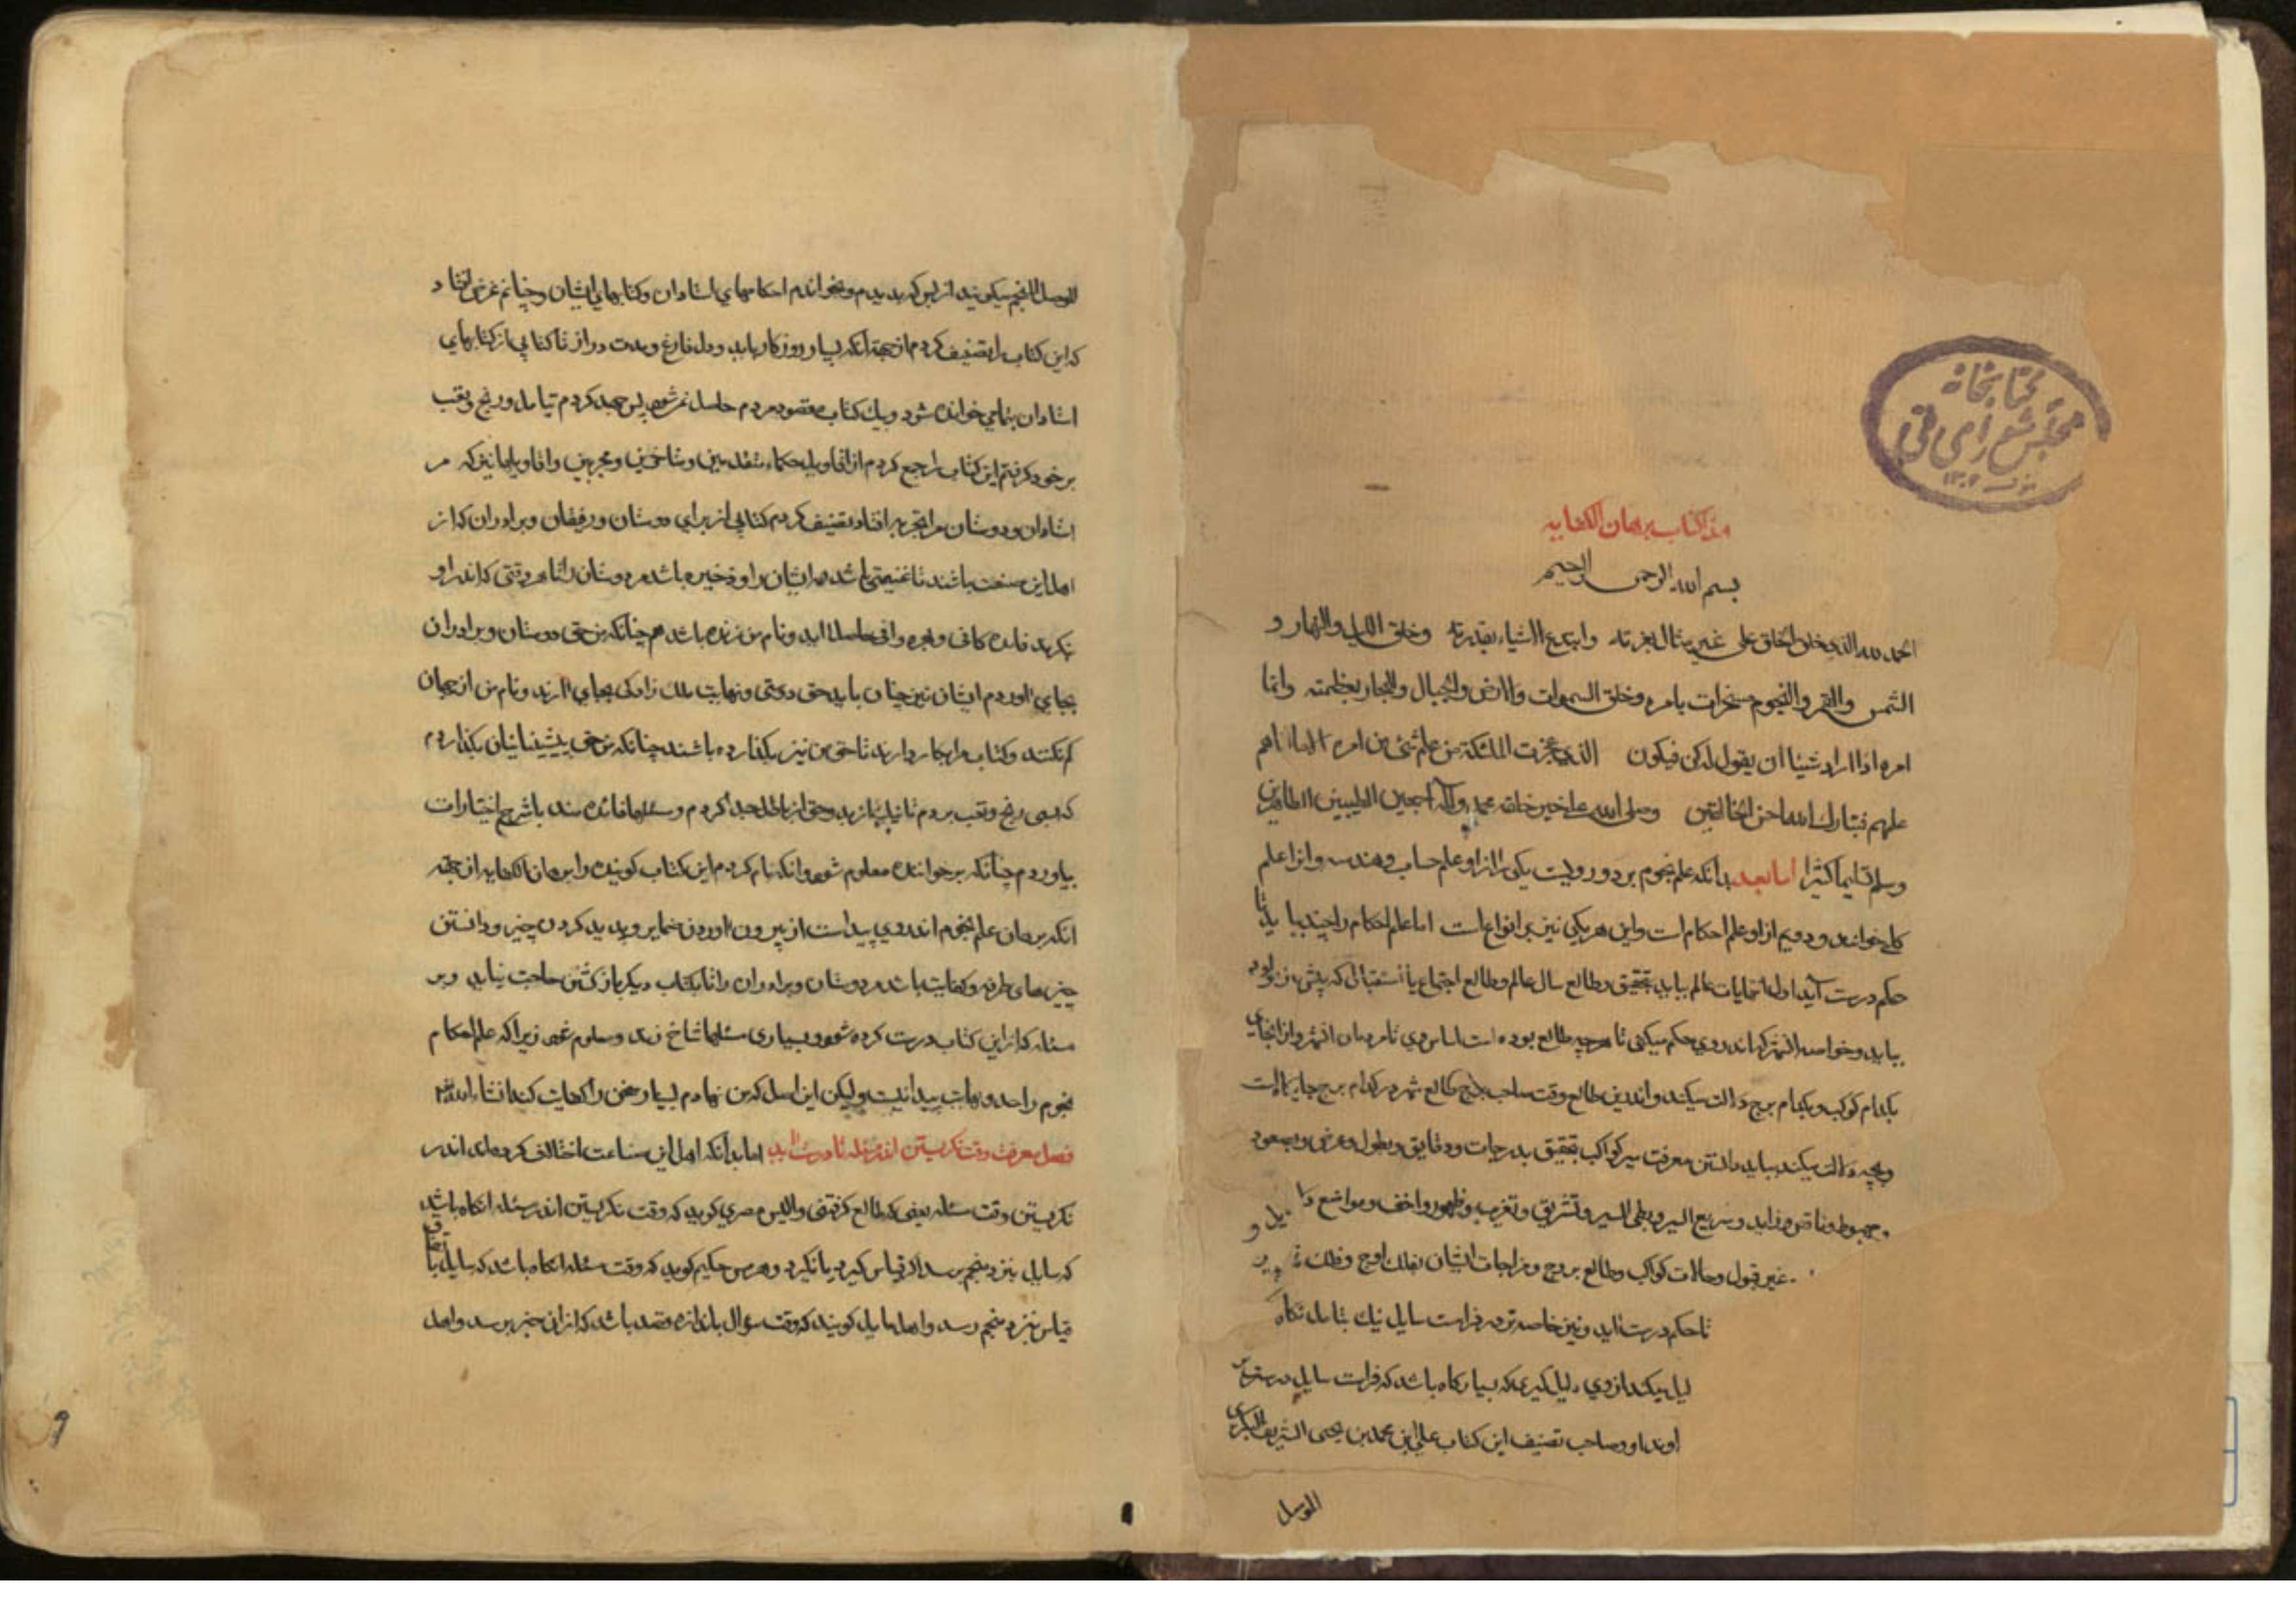 کتابخانه
مجلس شورای ملی
هذا کتاب برهان الکفایه
بسم الله الرحمن الرحیم
الحمد لله الذی خلق الخلق علی غیر مثال بعزته وابتدع الاشیاء بقدرته وخلق اللیل والنهار و
الشمس والقمر والنجوم مسخرات بامره وخلق السموات والارض والجبال والبحار بعظمته وانما
امره اذا اراد شیئا ان یقول له کن فیکون الذی عجزت الملئکة من علم شئ من امره الا ما
علهم فتبارک الله احسن الخالقین وصلی الله علی خیر خلقه محمد وآله اجمعین الطیبین الطاهرین
وسلم تسلیما کثیرا اما بعد بدانکه علم نجوم بر دو رویست یکی را ازو علم حساب وهندسه وانرا علم
کلی خوانند ودویم ازو علم احکام است واین هر یکی نیز بر انواع است اما علم احکام را چند بباید تا
حکم درست آید اول انتهایات عالم بباید بتحقیق وطالع سال عالم وطالع اجتماع یا استقبال که پیش از
بباید وخواصه الشهر که اندروی حکم میکنی تا هر چه طالع بوده است اساس وی تا مردمان آن شهر وازانجای
بکدام کوکب وبکدام برج دلالت میکند واندرین طالع وقت صاحب طالع شهر در کدام برج
وبچه دلالت میکند بباید دانستن معرفت سیر کواکب بتحقیق بدرجات ودقایق وطول وعرض وصعود
وهبوط وناقص وزاید وسریع السیر وبطی السیر وتشریق وتغریب وظهور واخفا ومواضع
غیر قبول وحالات کواکب وطالع بروج ومزاجات ایشان بفلک اوج وفلک
تا حکم درست آید ونیز خاصه تر در فراست سایل نیک بتامل نگاه
میکند از وی دلیل گیری که بسیار گاه باشد که فراست سایل
وصاحب تصنیف این کتاب علی ابن محمد بن یحیی الشریف البکری
الموصل
المنجم میگوید از پس که بدیدم وبخواندم احکامهای استادان وکتابهای ایشان
که این کتاب را تصنیف کردم از بهر آنکه بسیار روزگار باید ودل فارغ ومدت دراز تا کتابی از کتابهای
استادان بتمامی خوانده شود وبیک کتاب مقصود مردم حاصل نمی شود پس جهد کردم بتامل ورنج وتعب
بر خود گرفتم این کتاب را جمع کردم از اقاویل حکماء متقدمین ومتاخرین ومجربین واقاویلهای که مر
استادان ودوستان مرا تجربه افتاد تصنیف کردم کتابی از برای دوستان ورفیقان وبرادران که از
اهل این صنعت باشند تا غنیمتی باشد مر ایشان را وذخیره باشد مر دوستان را تا هر وقتی که اندر او
نگرند فایده کافی وبهره وافی حاصل آید ونام من زنده باشد هم چنانکه من حق دوستان وبرادران
بجای آوردم ایشان نیز چنان باید حق دوستی ونهایت بجای آرند ونام من از جهان
گم نکنند وکتاب مرا بکار دارند تا حق من نیز بگذارده باشند چنانکه من حق پیشینیان بگذاردم
که بسی رنج وتعب بردم وحق از باطل جدا کردم ومسئلها فایده مند با شرح اختیارات
بیاوردم چنانکه بر خواننده معلوم شود وانکه نام کردم این کتاب گویند را برهان الکفایه از بهر
آنکه برهان علم نجوم اندروی پیداست از بیرون آوردن ضمایر وپدید کردن چیز ودانستن
چیزهای طرفه وکفایت باشد مر دوستان وبرادران را تا بکتاب دیگر بازگشتن حاجت نیاید وبر
مسئله که از این کتاب درست کرده شود بسیاری مسئلها شاخ زند ومعلوم شود زیرا که علم احکام
نجوم را حد ونهایت پیدا نیست ولیکن این اصل که من نهادم بسیار سخن را کفایت کند انشاء الله
فصل معرفت وقت نگریستن اندر مسئله تا درست آید اما بدانکه اهل این صناعت اختلاف کرده اند اندر
نگریستن وقت مسئله یعنی که طالع گرفتن والیس مصری گوید که وقت نگریستن اندر مسئله آنگاه باشد
که سایل بنزد منجم رسد اگر قیاس گیرد یا نگیرد وهرمس حکیم گوید که وقت مسئله آنگاه باشد که سایل با
قیاس بنزد منجم رسد واهل بابل گویند که وقت سؤال باندازه وقصد باشد که از آن چیز پرسد واهل